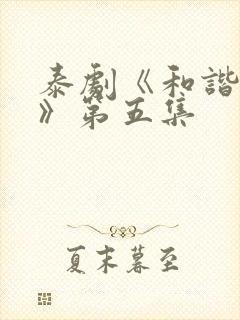 泰劇《和諧
》第五集
夏末暮至